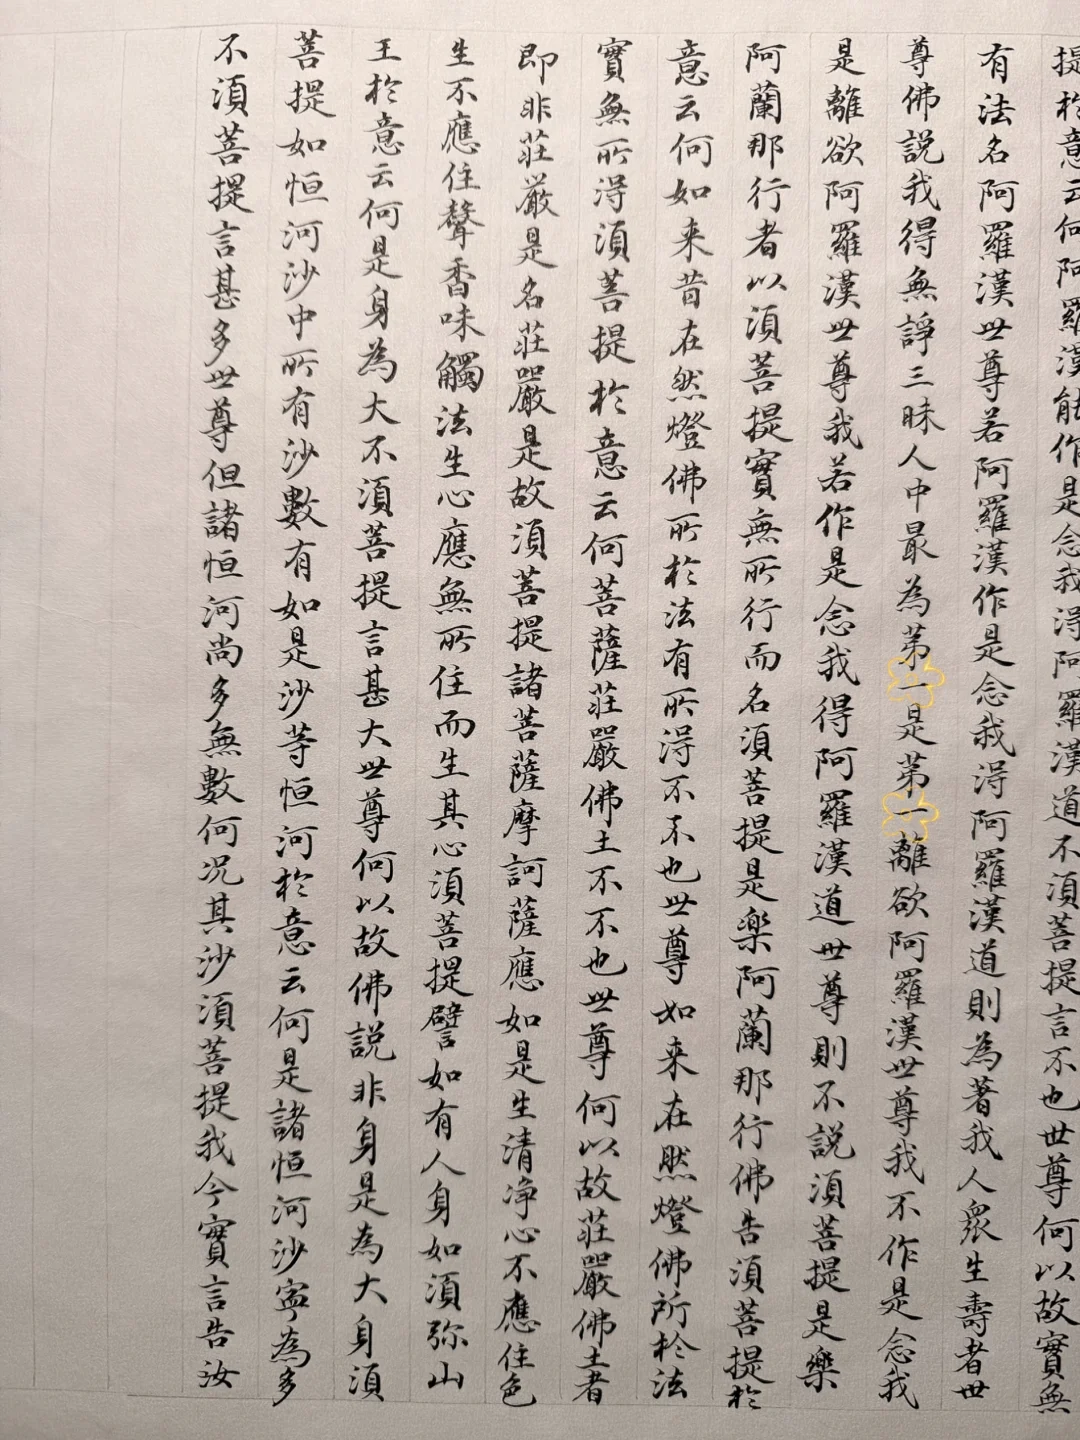 提於意云何阿羅漢能作是念我得阿羅漢道不須菩提言不也世尊何以故實無
有法名阿羅漢世尊若阿羅漢作是念我得阿羅漢道則為著我人眾生壽者世
尊佛説我得無諍三昧人中最為第一是第一離欲阿羅漢世尊我不作是念我
是離欲阿羅漢世尊我若作是念我得阿羅漢道世尊則不説須菩提是樂
阿蘭那行者以須菩提實無所行而名須菩提是樂阿蘭那行佛告須菩提於
意云何如来昔在然燈佛所於法有所得不不也世尊如来在然燈佛所於法
實無所得須菩提於意云何菩薩莊嚴佛土不不也世尊何以故莊嚴佛土者
即非莊嚴是名莊嚴是故須菩提諸菩薩摩訶薩應如是生清净心不應住色
生不應住聲香味觸法生心應無所住而生其心須菩提譬如有人身如須弥山
王於意云何是身為大不須菩提言甚大世尊何以故佛説非身是為大身須
菩提如恒河沙中所有沙數有如是沙等恒河於意云何是諸恒河沙寧為多
不須菩提言甚多世尊但諸恒河尚多無數何况其沙須菩提我今實言告汝